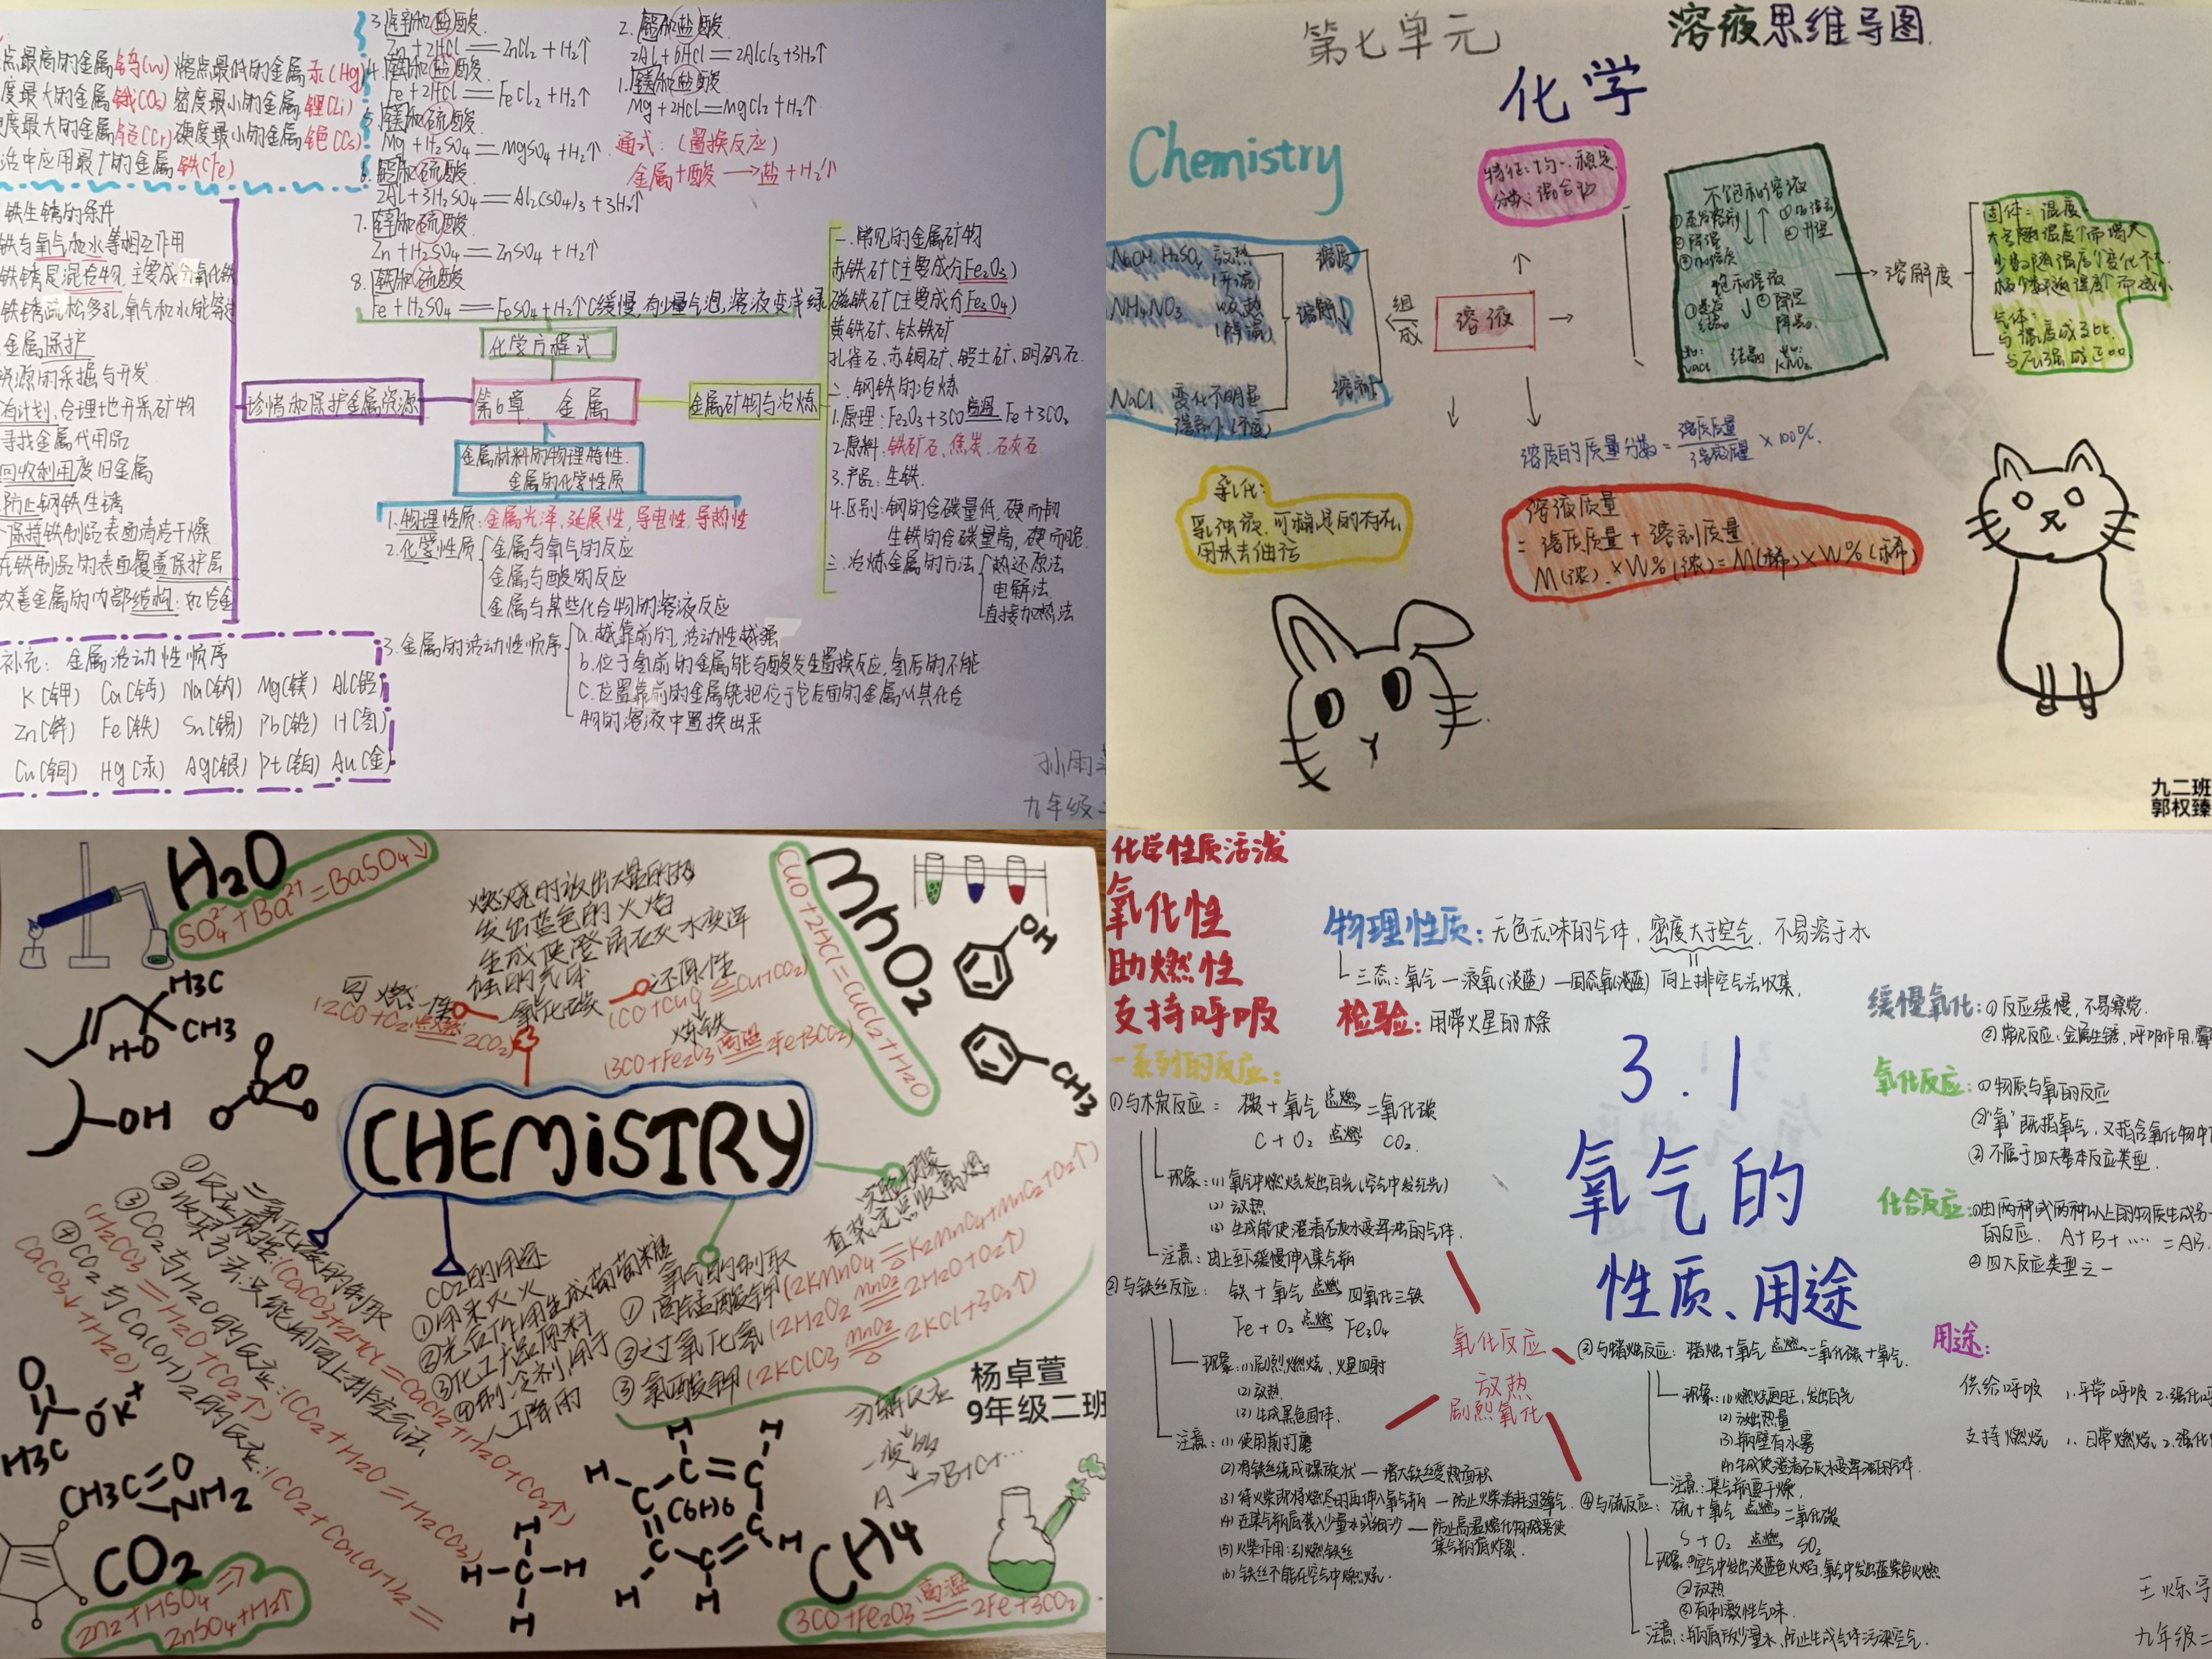 点最高的金属钨(W) 熔点最低的金属汞(Hg)
度最大的金属锇(Os) 密度最小的金属锂(Li)
度最大的金属铬(Cr) 硬度最小的金属铯(Cs)
活中应用最广的金属铁(Fe)
3.锌和盐酸
Zn+2HCl=ZnCl₂+H₂↑
4.铁和盐酸
Fe+2HCl=FeCl₂+H₂↑
5.镁和硫酸
Mg+H₂SO₄=MgSO₄+H₂↑
6.铝和硫酸
2Al+3H₂SO₄=Al₂(SO₄)₃+3H₂↑
7.锌和硫酸
Zn+H₂SO₄=ZnSO₄+H₂↑
8.铁和硫酸
Fe+H₂SO₄=FeSO₄+H₂↑(缓慢,有少量气泡,溶液变浅绿
2.铝和盐酸
2Al+6HCl=2AlCl₃+3H₂↑
1.镁和盐酸
Mg+2HCl=MgCl₂+H₂↑
通式:(置换反应)
金属+酸→盐+H₂↑
化学方程式
铁生锈的条件
铁与氧气和水等相互作用
铁锈是混合物,主要成分氧化铁
铁锈疏松多孔,氧气和水能穿过
金属保护
资源的采掘与开发
有计划,合理地开采矿物
寻找金属代用品
回收利用废旧金属
防止钢铁生锈
保持铁制品表面清洁干燥
在铁制品的表面覆盖保护层
改善金属的内部结构:如合金
珍惜和保护金属资源
第6章 金属
金属矿物与冶炼
金属材料的物理特性.
金属的化学性质
一.常见的金属矿物
赤铁矿(主要成分Fe₂O₃)
磁铁矿(主要成分Fe₃O₄)
黄铁矿、钛铁矿
孔雀石、赤铜矿、铝土矿、明矾石.
二.钢铁的冶炼
1.原理:Fe₂O₃+3CO 高温 Fe+3CO₂
2.原料.铁矿石、焦炭.石灰石
3.产品:生铁.
4.区别:钢的含碳量低,硬而韧
生铁的含碳量高,硬而脆.
三.冶炼金属的方法 热还原法
电解法
直接加热法
1.物理性质:金属光泽,延展性,导电性,导热性
2.化学性质 金属与氧气的反应
金属与酸的反应
金属与某些化合物的溶液反应
3.金属的活动性顺序 a.越靠前的,活动性越强
b.位于氢前的金属能与酸发生置换反应,氢后的不能.
C.位置靠前的金属能把位于它后面的金属从其化合
物的溶液中置换出来
补充:金属活动性顺序
K(钾) Ca(钙) Na(钠) Mg(镁) Al(铝)
Zn(锌) Fe(铁) Sn(锡) Pb(铅) H(氢)
Cu(铜) Hg(汞) Ag(银) Pt(铂) Au(金)
孙雨
九年级二
第七单元
溶液思维导图.
化学
Chemistry
特征:均一.稳定.
分类:混合物
NaOH.H₂SO₄ 放热
(升温)
NH₄NO₃ 吸热
(降温)
NaCl 变化不明显
溶质
溶解
溶剂
组成
溶液
不饱和溶液
饱和溶液
溶解度
固体:温度.
大多随温度↑而增大
气体:
溶质的质量分数=溶质质量/溶液质量×100%.
乳化:
用来去油污
溶液质量
=溶质质量+溶剂质量
M(浓).×W%(浓)=M(稀)×W%(稀)
九二班
郭权臻
H₂O
SO₄²⁻+Ba²⁺=BaSO₄↓
燃烧时放出大量的热
发出蓝色的火焰
生成使澄清石灰水变浑
浊的气体
可燃性
(2CO+O₂点燃2CO₂)
一氧化碳
还原性
(CO+CuO=Cu+CO₂)
炼铁
(3CO+Fe₂O₃高温2Fe+3CO₂)
CuO+2HCl=CuCl₂+H₂O
MnO₂
OH
CH3
H3C
CH3
HO
OH
CHEMiSTRY
二氧化碳的制取
①反应原理:(CaCO₃+2HCl=CaCl₂+H₂O+CO₂↑)
②收集方法:只能用向上排空气法
③CO₂与H₂O的反应:(CO₂+H₂O=H₂CO₃)
(H₂CO₃=H₂O+CO₂↑)
④CO₂与Ca(OH)₂的反应:(CO₂+Ca(OH)₂=
CaCO₃↓+H₂O)
CO₂的用途
①用来灭火
②光合作用生成葡萄糖
③化工产品原料
④制冷剂用于
人工降雨
氧气的制取
①高锰酸钾(2KMnO₄=K₂MnO₄+MnO₂+O₂↑)
②过氧化氢(2H₂O₂ MnO₂ 2H₂O+O₂↑)
③氯酸钾(2KClO₃ MnO₂ 2KCl+3O₂↑)
实验步骤
查装定点收离熄
杨卓萱
9年级二班
分解反应
一变多
A→B+C+…
H3C
O⁻K⁺
CH3C
O
NH2
CO₂
Zn₂+HSO₄⇒
ZnSO₄+H₂↑
(CH)6
CH4
3CO+Fe₂O₃高温2Fe+3CO₂
化学性质活泼
氧化性
助燃性
支持呼吸
物理性质:无色无味的气体,密度大于空气,不易溶于水
三态:氧气—液氧(淡蓝)—固态氧(淡蓝) 向上排空气法收集.
检验:用带火星的木条
一系列的反应:
3.1
氧气的
性质、用途
①与木炭反应:碳+氧气 点燃→ 二氧化碳
C+O₂ 点燃 CO₂.
现象:(1)氧气中燃烧发出白光(空气中发红光)
(2)放热
(3)生成能使澄清石灰水变浑浊的气体.
注意:由上至下缓慢伸入集气瓶
②与铁丝反应:铁+氧气 点燃→ 四氧化三铁
Fe+O₂ 点燃→ Fe₃O₄
现象:(1)剧烈燃烧,火星四射
(2)放热
(3)生成黑色固体.
注意:(1)使用前打磨
(2)将铁丝绕成螺旋状—增大铁丝受热面积
(3)待火柴即将燃尽时再伸入氧气瓶—防止火柴消耗过多氧气.
(4)在集气瓶底装入少量水或细沙—防止高温熔化物溅落使
集气瓶底炸裂.
(5)火柴作用:引燃铁丝
(6)铁丝不能在空气中燃烧.
氧化反应
放热
剧烈氧化
缓慢氧化:①反应缓慢,不易察觉.
②常见反应:金属生锈,呼吸作用,
氧化反应:①物质与氧的反应
②"氧"既指氧气,又指含氧化物中
③不属于四大基本反应类型.
化合反应:①由两种或两种以上的物质生成另一
的反应. A+B+……=AB.
②四大反应类型之一
③与蜡烛反应:蜡烛+氧气 点燃→ 二氧化碳+氧气.
现象:(1)燃烧更旺,发出白光
(2)放出热量
(3)瓶壁有水雾
(4)生成使澄清石灰水变浑浊的气体.
注意:集气瓶要干燥.
④与硫反应:硫+氧气 点燃→ 二氧化碳
S+O₂ 点燃→ SO₂
现象:①空气中发出淡蓝色火焰,氧气中发出蓝紫色火焰
②放热
③有刺激性气味.
注意:瓶底放少量水,防止生成气体污染空气.
用途:
供给呼吸 1.平常呼吸 2.强化呼
支持燃烧 1.日常燃烧 2.强化
王烁宇
九年级二